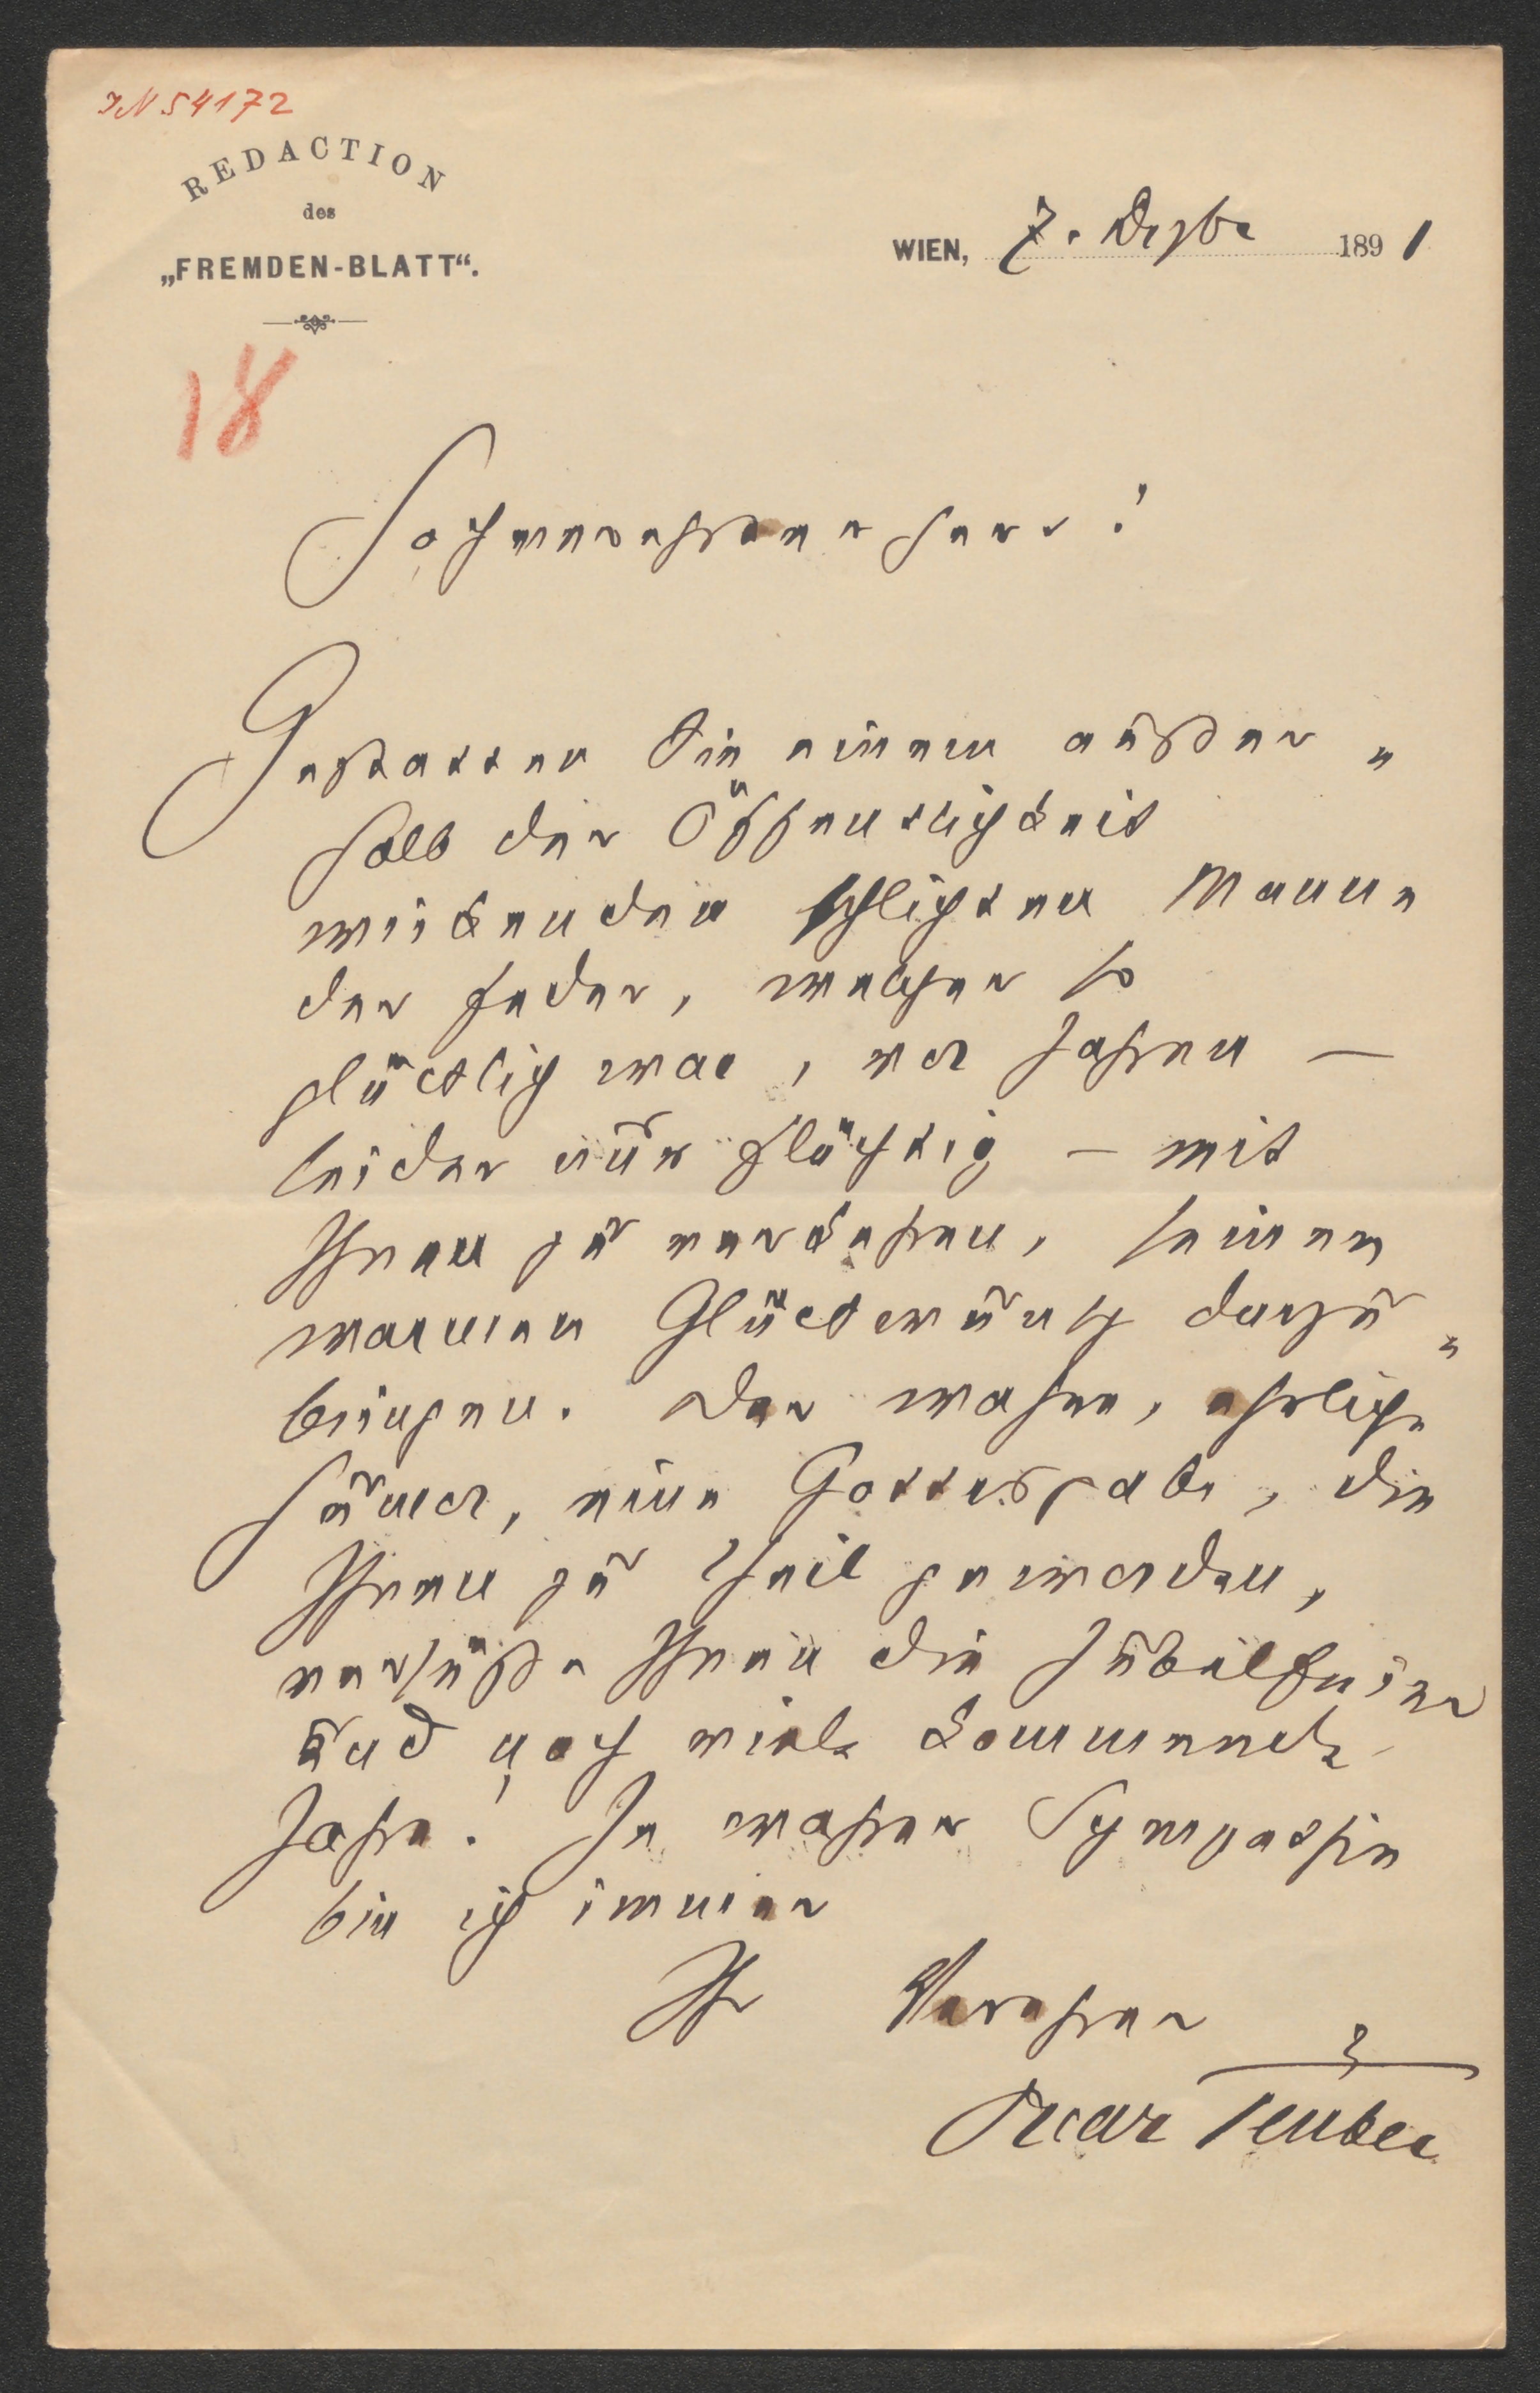 IN 54172
REDACTION
des
„FREMDEN-BLATT“.
WIEN, 7. Dezbr 1891
18
Hochverehrter Herr!
Gestatten Sie einem außer„
halb der Öffentlichkeit
wirkenden schlichten Manne
der Feder, welcher so
glücklich war, vor Jahren —
leider nur flüchtig — mit
Ihnen zu verkehren, seinen
warmen Glückwunsch darzu„
bringen. Der wahre, ehrliche
Humor, eine Gottesgabe, die
Ihnen zu Theil geworden,
versüße Ihnen die Jubelfeier
und noch viele kommende
Jahre! In wahrer Sympathie
bin ich immer
Ihr Verehrer
Oscar Teuber